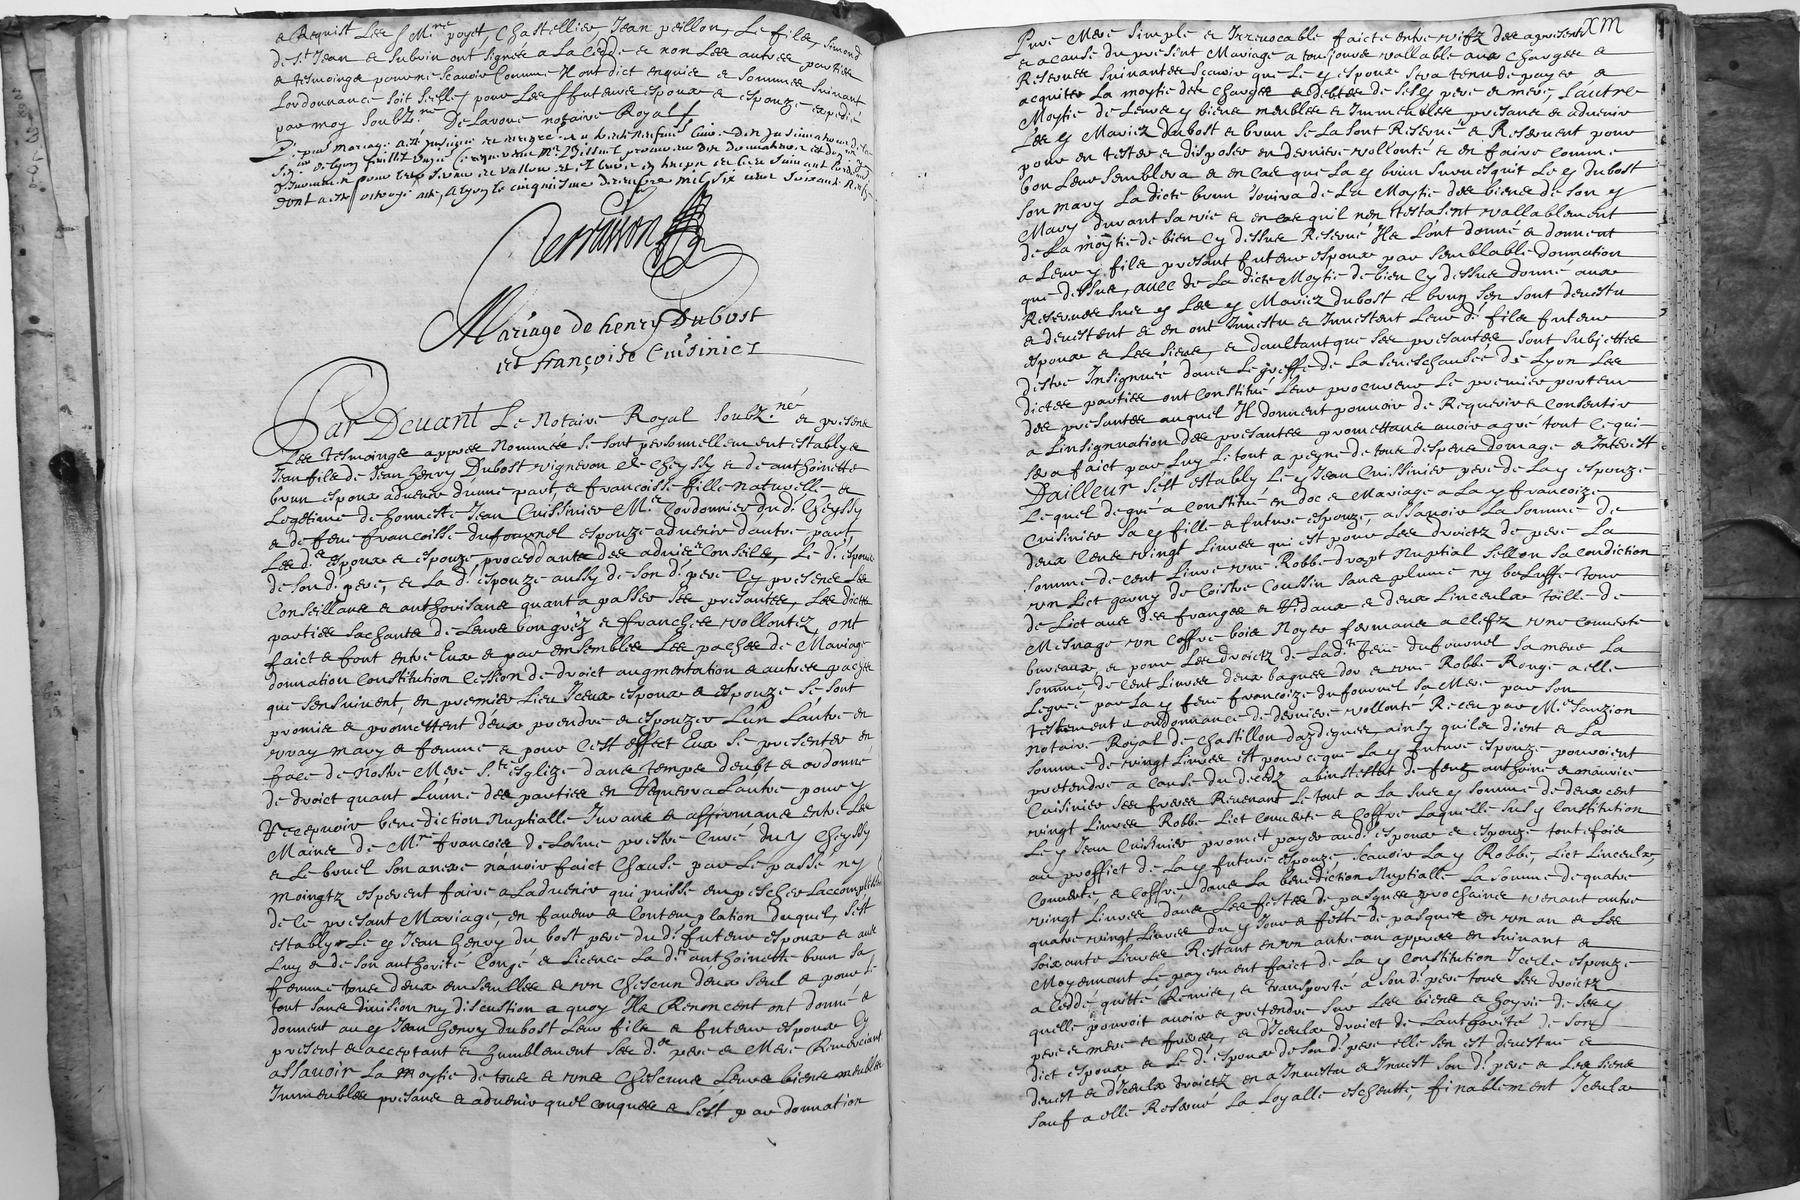 e Requist Les s Mtre poyet, Chastellier, Jean peillon, Le fils, Simond
de st Jean e Subrin ont signés a La Cedde e non Les autres parties
e tesmoings pour ne scavoir Comme Il ont dict enquis e sommes suivant
Lordonnance soit seelles pour Les ffuteurs espoux e espouze expedié
par moy soubzne Delavoue notaire Royal
dont acte
a lyon le cinquiesme decembre mil six cent soixante
Terrasson
Mariage de henry Dubost
et françoise Cuisinier
Par Devant Le Notaire Royal soubz.né e presens
Les tesmoings appres Nommés se sont personnellement establys
Jean fils de Jean henry Dubost vigneron de Cheyssy e de anthoinette
brun espoux advenir d'une part, e francoisse fille naturelle e
Legitime de honneste Jean Cuissinier Me Cordonnier dud. Cheyssy
e de feue francoisse dufournel espouze advenir d'autre part,
Les ds espoux e espouze, proceddants des advis e Conseils, Le d. espoux
de son d. pere, e La d. espouze aussy de son d. pere Cy presens Les
Conseillans e authorisans quant a passer Les presantes, Les dictes
parties sachants de Leurs bon grez e franches vollontez, ont
faict e font entre Eux e par ensembles Les paches de Mariage
donnation Constitution Cession de droict augmentation e autres paches
que sensuivent, en premier Lieu Iceux espoux e espouze se sont
promis e promettent d'eux prendre e espouzer L'un L'autre en
vray mary e femme e pour C'est effect Eux se presenter en
face de Nostre Mere Ste esglize dans temps deubt e ordonné
de droict quant L'une des parties en Requerra L'autre pour y
Recepvoir benediction Nuptialle Jurans e affirmans entre Les
Mains de Mr francois de Losme prestre Curé du y Cheyssy
e Le bruel son anexe n'avoir faict Chause par Le passé ny
moingtz esperent faire a Ladvenir qui puisse empescher Laccomplissement
de Ce presant Mariage, en faveur e Contemplation duquel, s'est
estably Le y Jean henry du bost pere du d. futeur espoux e avec
Luy e de son authorité Congé e Licence La d. anthoinette brun sa
femme tous deux ensembles e un Chescun deux seul e pour le
tout sans division ny discustion a quoy Ils Renoncent ont donné e
donnent au y Jean henry dubost Leur fils e futeur espoux Cy
present e acceptant e humblement ses ds pere e Mere Remerciant
assavoir La moytie de tous e uns Chescuns Leurs biens meubles
Immeubles presans e advenir quel conques e s'est par donnation
XIII
Pure Mere simple e Irrevocable faicte entre vifz des agreseurs
e a Cause du present Mariage a tousjours vallable aux Charges e
Reserves suivantes scavoir que Le y espoux sera tenu de payer e
acquiter La moytie des Charges e debtes de ses y pere e mere, L'autre
Moytie de Leurs y biens meubles e Immeubles presans e advenir
Les y Mariez dubost e brun se La sont Reserve e Reservent pour
pour en tester e disposer en derniere vollonté e en faire comme
bon Leur semblera e en Cas que La y brun survesquit Le y dubost
son mary La dicte brun jouira de La Moytie des biens de son y
Mary durant sa vie e en Cas qu'il n'en testasent vallablement
de La moytie de bien Cy dessus Reservé Ils L'ont donné e donnent
a Leur y fils presant futeur espoux par semblable donnation
que dessus, avec de La dicte Moytie de bien Cy dessus donné aux
Reserves sus y Les y Mariez dubost e brun s'en sont devestu
e devestent e en ont Investu e Investent Leur d. fils futeur
espoux e Les siens, e d'aultant que Les presantes sont subjettes
d'estre Insignuées dans Le greffe de La seneschausée de Lyon Les
dictes parties ont Constitué Leur procureur Le premier porteur
des presantes auquel Il donnent pouvoir de Requerir e Consentir
a L'insignuation des presantes promettans avoir a gré tout Ce qui
sera faict par Luy Le tout a peyne de tous despens domage e Interest
D'ailleur s'est estably Le y Jean Cuissinier pere de La y espouze
Lequel de gré a Constitué en doc e Mariage a La y francoize
Cuisinier sa y fille e future espouze, assavoir La somme de
deux Cens vingt Livres qui est pour Les droictz de pere La
somme de Cent Livres une Robbe drapt Nuptial sellon sa Condiction
un Lict garny de Coistre Coussin sans plume ny baluffe tour
de Lict avec des franges e Ridaux e deux Linceulx toille de
Mesnage un Coffre bois Noyer fermans a Clefz une Couverte
bureaux, e pour Les droictz de La d. feue dufournel sa mere La
somme de Cent Livres deux bagues d'or e une Robbe Rouge a elle
Leguée par La y feue francoize dufournel sa Mere par son
testement e ordonnance de derniere vollonté Receu par Me Sanzion
Notaire Royal de Chastillon dazergues, ainsy qu'ils dient e La
somme de vingt Livres est pour ce que La y future espouze pouvoient
pretendre a Cause du deces abintestat de feuz anthoine e maurice
Cuisinier ses freres Revenant Le tout a La sus y somme de deux cent
vingt Livres Robbe Lict Couverte e Coffre Laquelle sus y Constitution
Le y Jean Cuisinier promet payer aud. espoux e espouze toutefois
au proffict de La y future espouze, scavoir La y Robbe, Lict Linceulx,
Couverte e Coffre, dans La benediction Nuptialle La somme de quatre
vingt Livres dans Les festes de pasques prochaines venant autre
quatre vingt Livres du y Jour e feste de pasques en un an e Les
soixante Livres Restant en un autre an appres en suivant e
Moyennant Le payement faict de La y Constitution Icelle espouze
a Ceddé quitté Remis, e transporté a son d. pere tous ses droictz
quelle pouvoit avoir e pretendre sur Les biens e hoyrie de ses y
pere e mere e freres, e d'Iceulx droict de L'authorité de son
dict espoux e Le d. espoux de son d. pere elle s'en est devestue e
devest e d'Iceulx droictz en a Investu e Invest son d. pere e Les siens
sauf a elle Reservé La Loyalle escheutte, finablement Iceulx